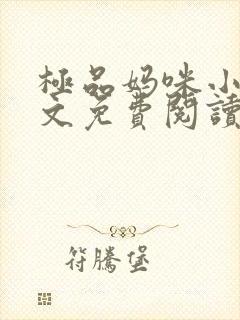 極品妈咪小
文免費閱讀
符騰堡